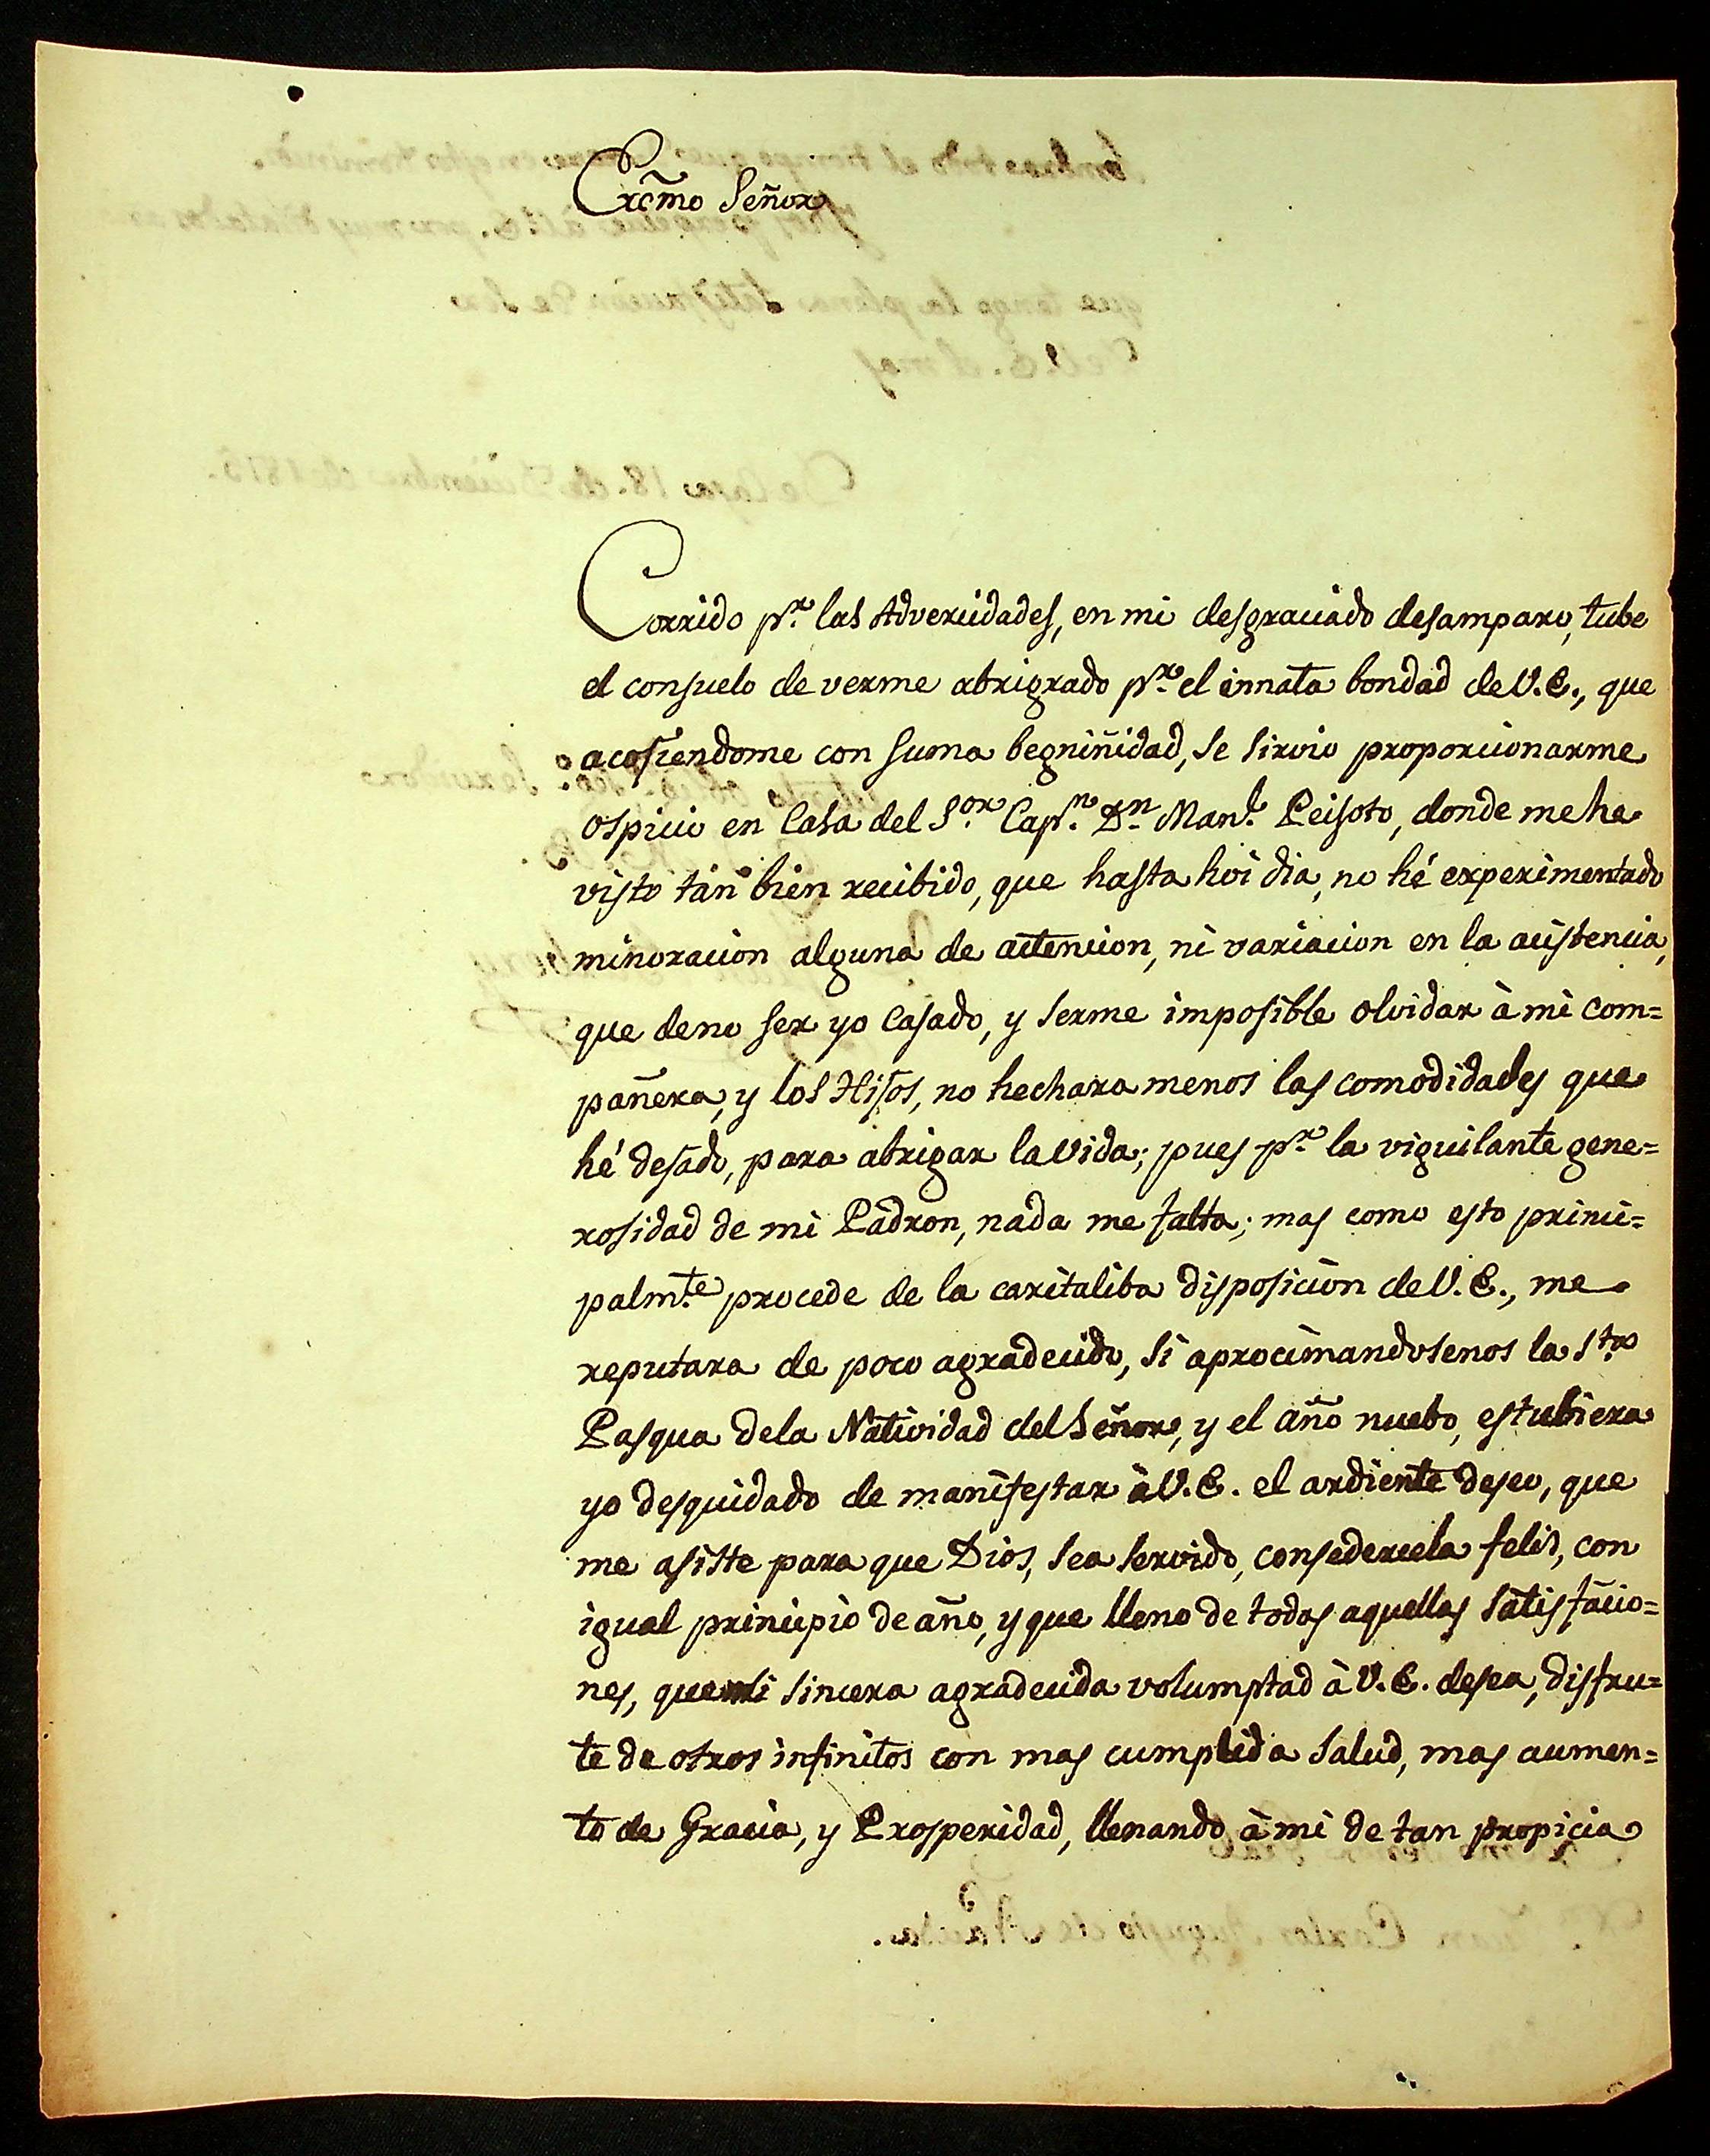 Excmõ Señor
Corrido pr. las Adversidades, en mi desgraciado desamparo, tube
el consuelo de verme abrigrado pr. el innata bondad de V.E., que
acojiendome con suma begniñidad, se sirvio proporcionarme
ospicio en Casa del Sor. Capn. Dn. Manl. Peisoto, donde me he
visto tán bien recibido, que hasta hoi dia, no hé experimentado
minoracion alguna de aitencion, ni variacion en la acistencia,
que de no ser yo Casado, y serme imposible olvidar à mi com=
pañera, y los Hijos, no hechara menos las comodidades que
hé dejado, para abrigar la vida; pues pr. la viguilante gene=
rosidad de mi Padron, nada me falta; mas como esto princi=
palmte. procede de la caritatiba disposicion de V.E., me
reputara de poco agradecido, si aprocimandosenos la Sta.
Pasqua de la Natividad del Señor, y el año nuebo, estubiera
yo desquidado de manifestar à V.E. el ardiente deseo, que
me asiste para que Dios, sea servido, consedersela felis, con
igual principio de año, y que lleno de todas aquellas satisfacio=
nes, que mi sincera agradecida volumptad à V.E. desea, disfru=
te de otros infinitos con mas cumplida salud, mas aumen=
to de Gracia, y Prosperidad, llenando à mi de tan propicia